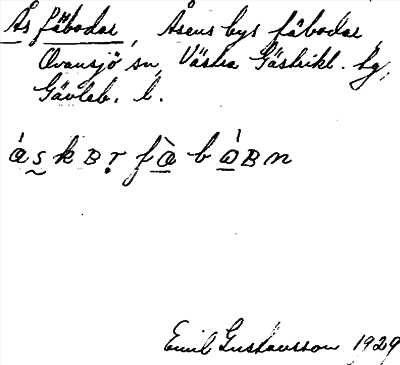 Ås fäbodar, Åsens bys fäbodar,
Ovansjö sn, Västra Gästrikl. hg,
Gävleb. l.
Emil Gustavsson 1929